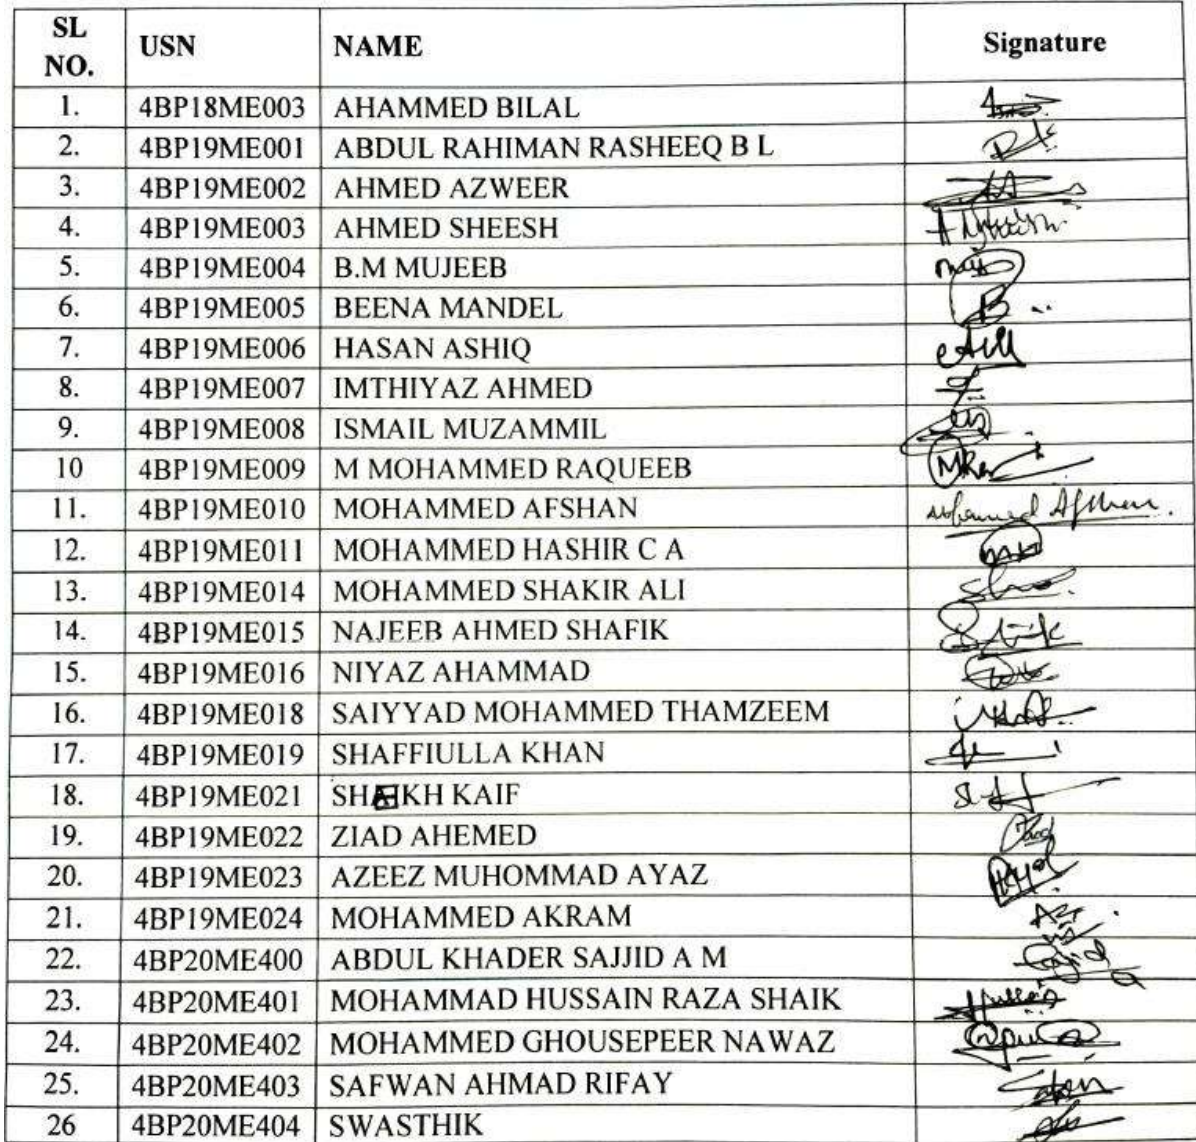 SL NO. USN NAME Signature
1. 4BP18ME003 AHAMMED BILAL
2. 4BP19ME001 ABDUL RAHIMAN RASHEEQ B L
3. 4BP19ME002 AHMED AZWEER
4. 4BP19ME003 AHMED SHEESH
5. 4BP19ME004 B.M MUJEEB
6. 4BP19ME005 BEENA MANDEL
7. 4BP19ME006 HASAN ASHIQ
8. 4BP19ME007 IMTHIYAZ AHMED
9. 4BP19ME008 ISMAIL MUZAMMIL
10 4BP19ME009 M MOHAMMED RAQUEEB
11. 4BP19ME010 MOHAMMED AFSHAN
12. 4BP19ME011 MOHAMMED HASHIR C A
13. 4BP19ME014 MOHAMMED SHAKIR ALI
14. 4BP19ME015 NAJEEB AHMED SHAFIK
15. 4BP19ME016 NIYAZ AHAMMAD
16. 4BP19ME018 SAIYYAD MOHAMMED THAMZEEM
17. 4BP19ME019 SHAFFIULLA KHAN
18. 4BP19ME021 KAIF
19. 4BP19ME022 ZIAD AHEMED
20. 4BP19ME023 AZEEZ MUHOMMAD AYAZ
21. 4BP19ME024 MOHAMMED AKRAM
22. 4BP20ME400 ABDUL KHADER SAJJID A M
23. 4BP20ME401 MOHAMMAD HUSSAIN RAZA SHAIK
24. 4BP20ME402 MOHAMMED GHOUSEPEER NAWAZ
25. 4BP20ME403 SAFWAN AHMAD RIFAY
26 4BP20ME404 SWASTHIK